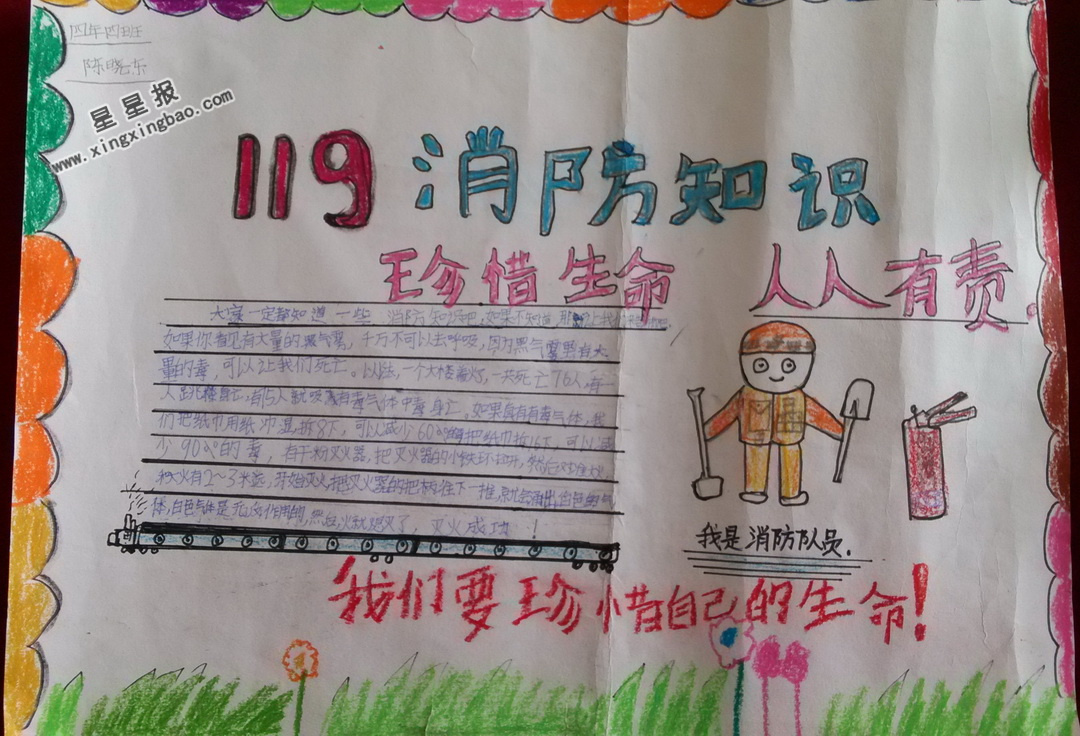 四年四班
陈晓东
星星报
www.xingxingbao.com
119 消防知识
珍惜生命 人人有责.
大家一定都知道一些 消防知识把,如果不知道,那
如果你看见有大量的黑气雾,千万不可以去呼吸,因为黑气雾里有大
量的毒,可以让我们死亡。以前,一个大楼着火,一共死亡76人,有一
人跳楼身亡,有15人就吸有毒气体中毒身亡,如果真有有毒气体,我
们把纸巾用纸冲湿,折8下,可以减少60%的把纸巾折16下,可以减
少90%的毒,有干粉灭火器,把灭火器的小铁环拉开,然后对准大火
和火有2~3米远,开始灭火,把灭火器的把柄往下一推,就会漏出白色的气
体,白色气体是无作用的,然后,火就熄灭了,灭火成功!
我是消防队员.
我们要珍惜自己的生命!